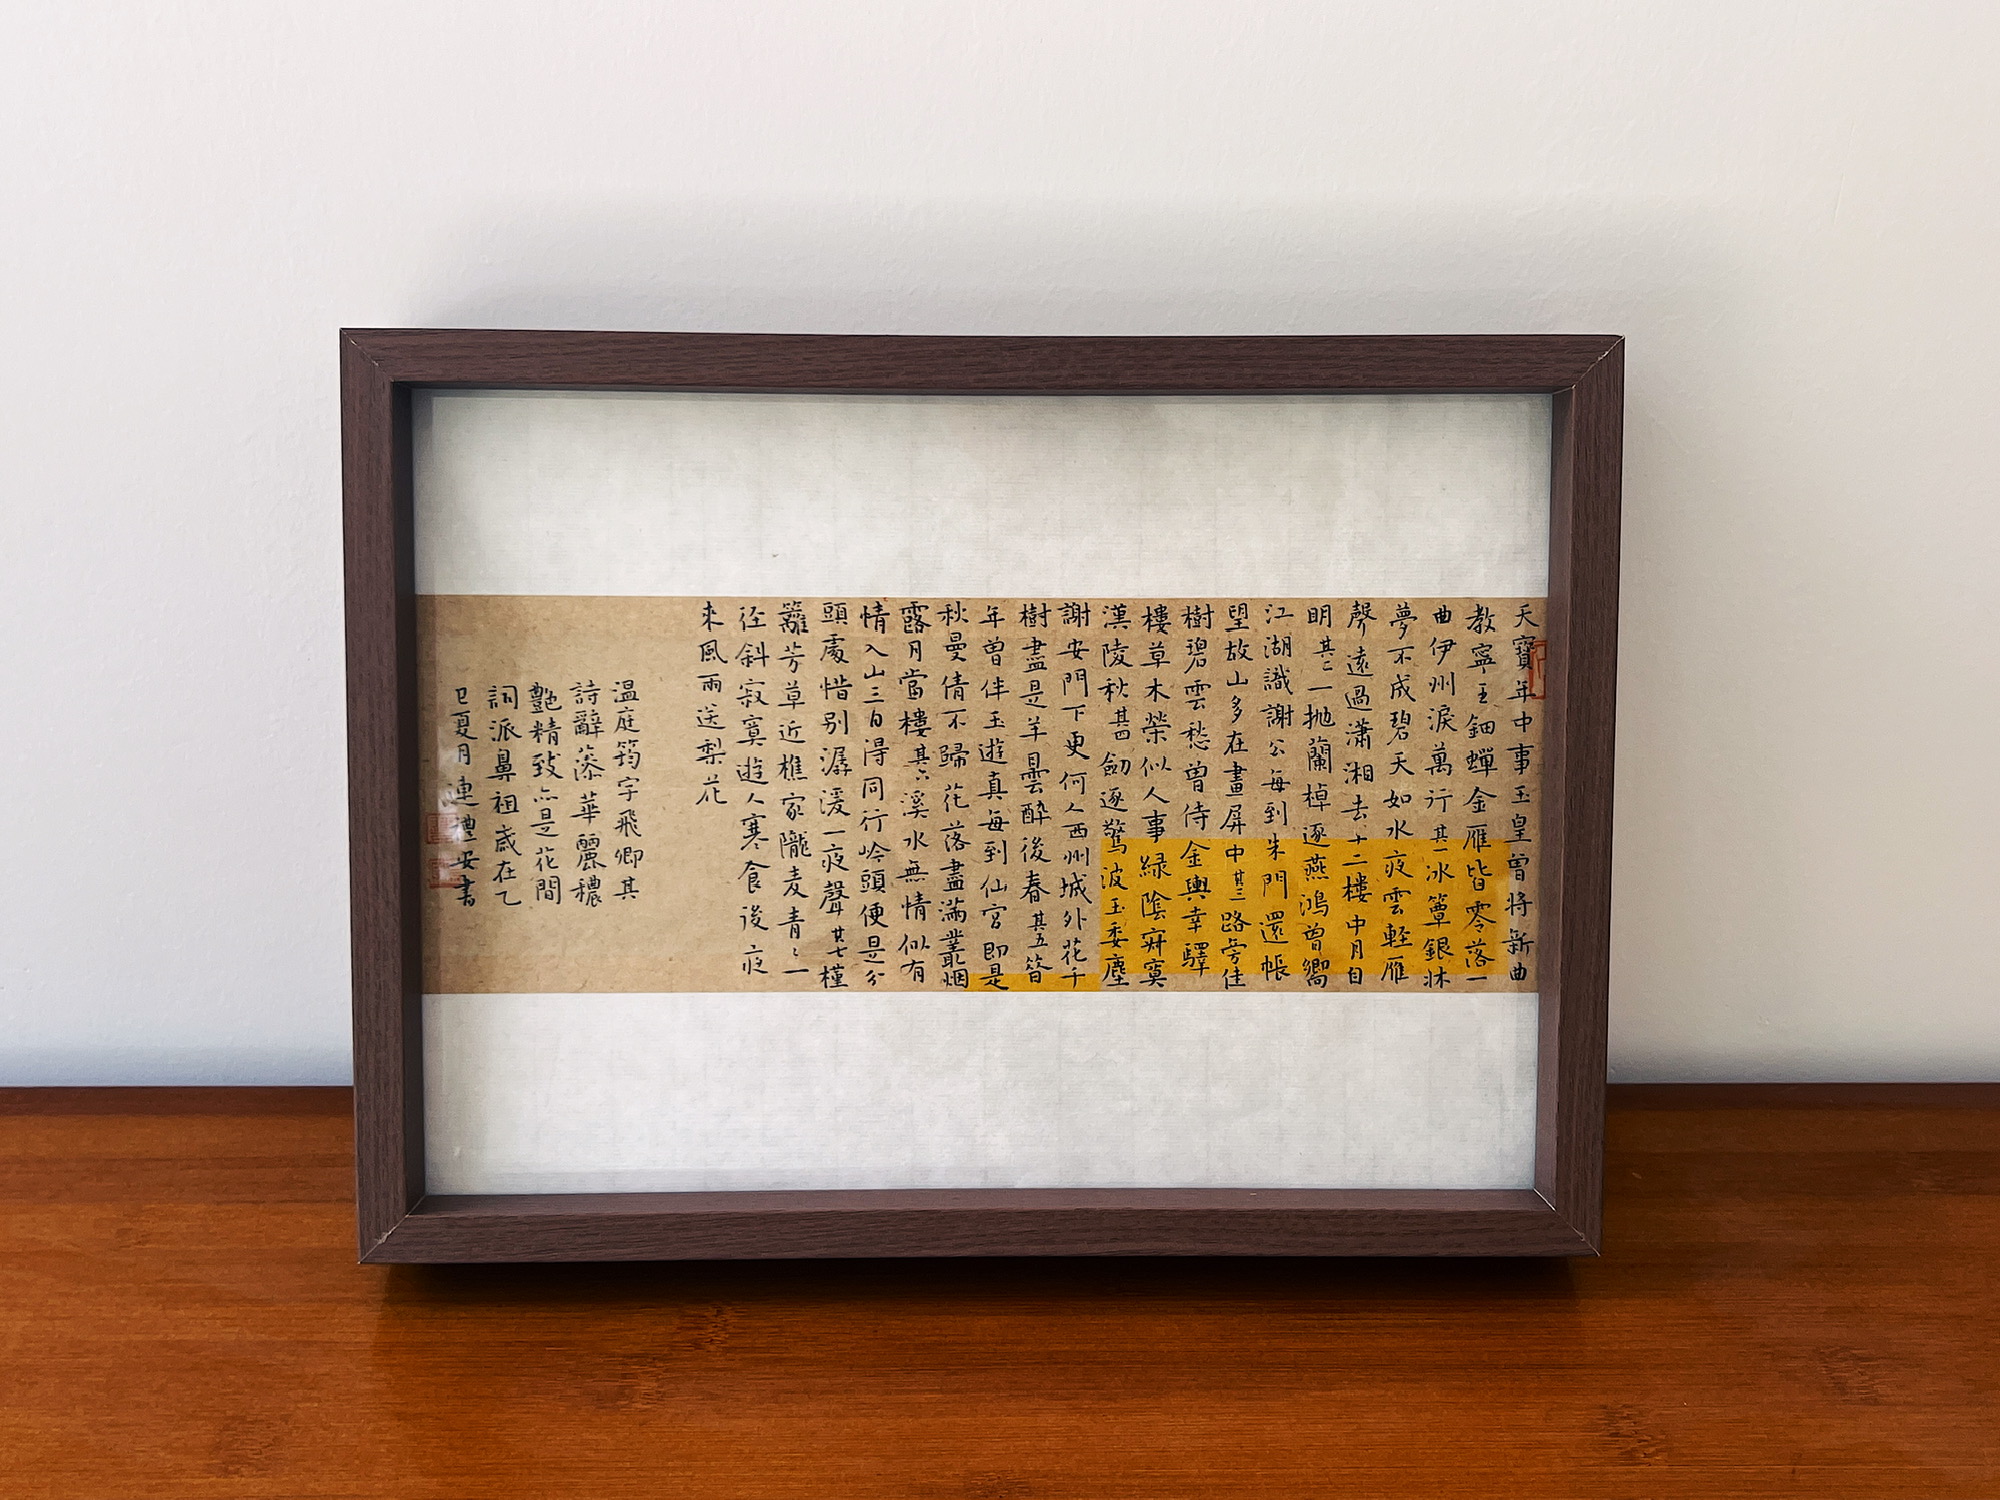 天寶年中事玉皇曾將新曲
教寧王鈿蟬金雁皆零落一
曲伊州淚萬行其一冰簟銀牀
夢不成碧天如水夜雲輕雁
聲遠過瀟湘去十二樓中月自
明其二一抛蘭棹逐燕鴻曾嚮
江湖識謝公每到朱門還帳
望故山多在畫屏中其三路旁佳
樹碧雲愁曾侍金輿幸驛
樓草木榮似人事緑陰寂寞
漢陵秋其四劒逐驚波玉委塵
謝安門下更何人西州城外花千
樹盡是羊曇醉後春其五簪
年曾伴玉遊真每到仙宮即是
秋曼倩不歸花落盡滿叢烟
露月當樓其六溪水無情似有
情入山三日得同行岭頭便是分
頭處惜别潺湲一夜聲其七槿
籬芳草近樵家隴麦青〻一
径斜寂寞遊人寒食後夜
来風雨送梨花
温庭筠字飛卿其
詩辭藻華麗穠
艶精致亦是花間
詞派鼻祖歳在乙
巳夏月連禮安書